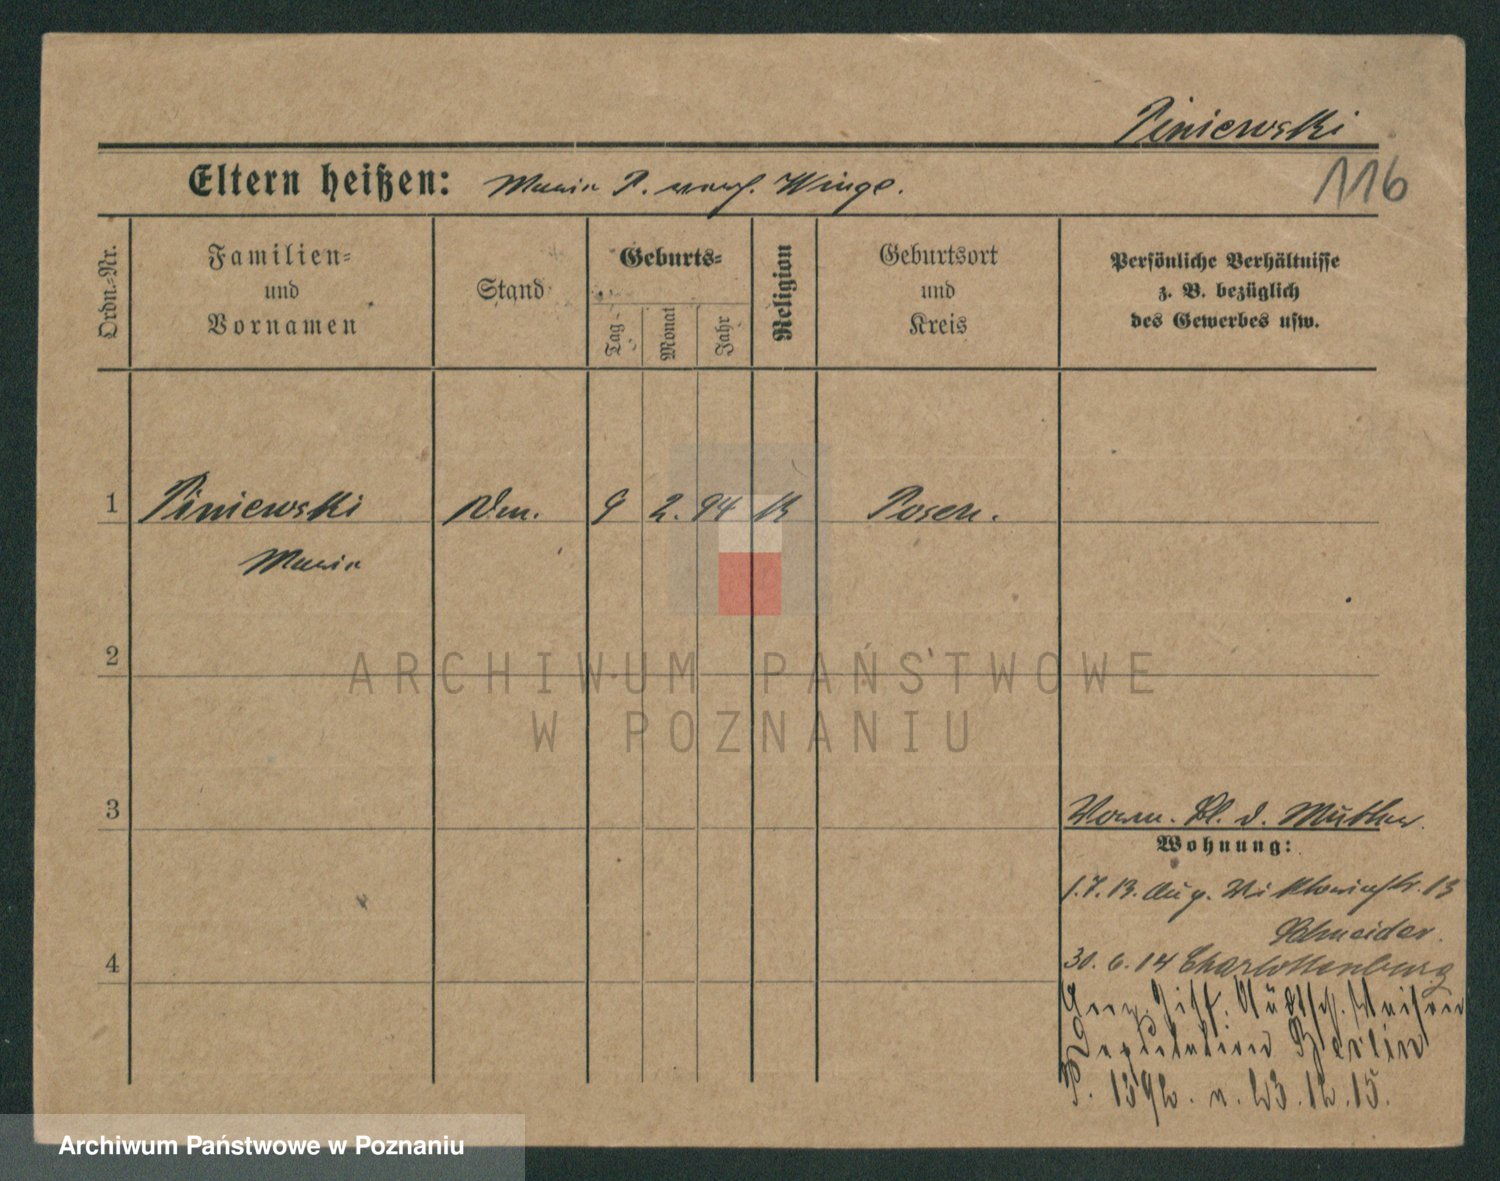 Piniewski
116
Eltern heißen: Maria P. verw. Winge.
Ordn.-Nr.
Familien=
und
Vornamen
Stand
Geburts=
Tag
Monat
Jahr
Religion
Geburtsort
und
Kreis
Persönliche Verhältnisse
z. B. bezüglich
des Gewerbes usw.
1 Piniewski 9 2. 94 K Posen.
Maria
2
ARCHIWUM PAŃSTWOWE
W POZNANIU
3
Vorm. Bl. d. Mutter.
Wohnung:
1.7.13. Aug. 13
Schneider.
4
30. 6. 14 Charlottenburg
Deputation Berlin
23.12.15.
Archiwum Państwowe w Poznaniu